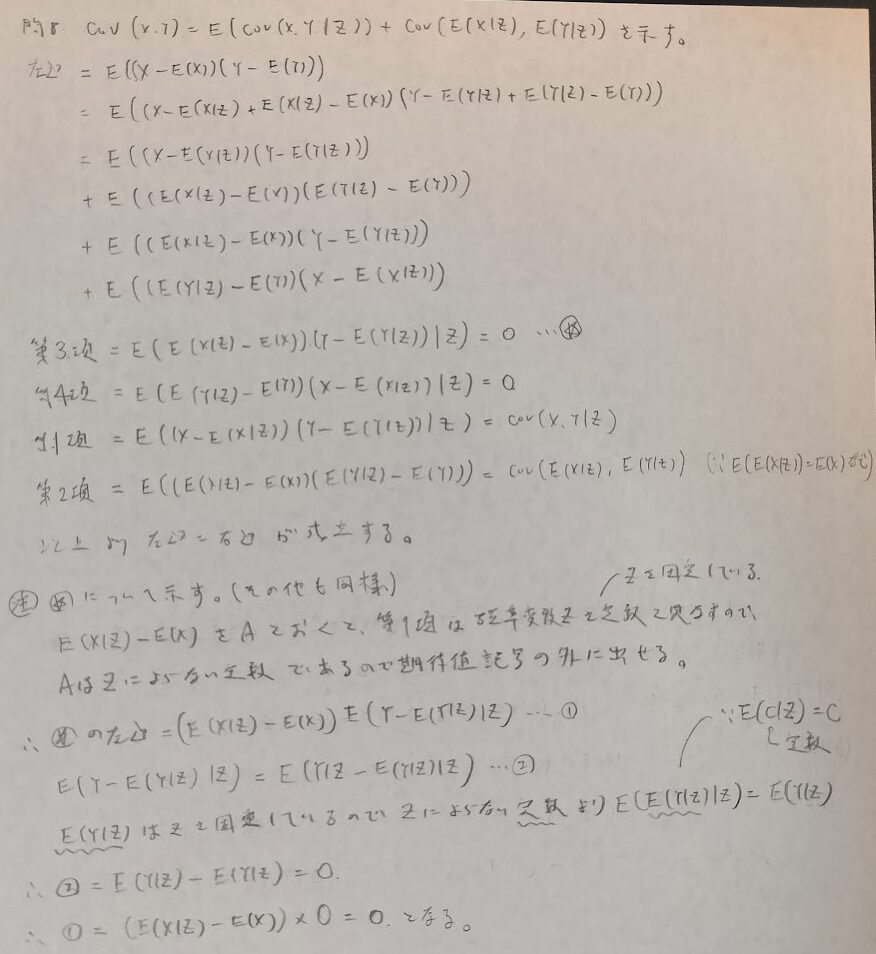 問8 Cov(X,Y) = E(Cov(X,Y|Z)) + Cov(E(X|Z), E(Y|Z)) を示す。
左辺 = E((X-E(X))(Y-E(Y)))
= E((X-E(X|Z)+E(X|Z)-E(X))(Y-E(Y|Z)+E(Y|Z)-E(Y)))
= E((X-E(X|Z))(Y-E(Y|Z)))
+ E((E(X|Z)-E(X))(E(Y|Z)-E(Y)))
+ E((E(X|Z)-E(X))(Y-E(Y|Z)))
+ E((E(Y|Z)-E(Y))(X-E(X|Z)))
第3項 = E(E(X|Z)-E(X))(Y-E(Y|Z))|Z) = 0 …
第4項 = E(E(Y|Z)-E(Y))(X-E(X|Z))|Z) = 0
第1項 = E((X-E(X|Z))(Y-E(Y|Z))|Z) = Cov(X,Y|Z)
第2項 = E((E(X|Z)-E(X))(E(Y|Z)-E(Y))) = Cov(E(X|Z), E(Y|Z)) (∵E(E(X|Z))=E(X)
以上より左辺=右辺が成立する。
について示す。(その他も同様)
Zを固定している。
E(X|Z)-E(X)をAとおくと、第1項は確率変数Zを定数と見なすので、
AはZによらない定数であるので期待値記号の外に出せる。
∴ の左辺 = (E(X|Z)-E(X))E(Y-E(Y|Z)|Z) … ①
∵E(C|Z)=C
定数
E(Y-E(Y|Z)|Z) = E(Y|Z-E(Y|Z)|Z) … ②
E(Y|Z)はZを固定しているのでZによらない定数より E(E(Y|Z)|Z)=E(Y|Z)
∴ ② = E(Y|Z)-E(Y|Z) = 0.
∴ ① = (E(X|Z)-E(X))×0 = 0. となる。